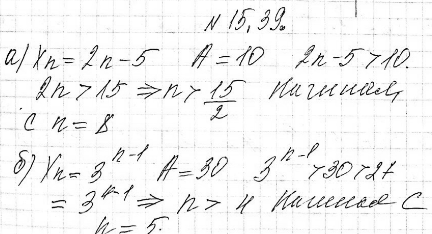 № 15,39.
а) Xn = 2n-5 A = 10 2n-5 > 10.
2n > 15 ⇒ n > 15/2 Начиная
с n = 8
б) Yn = 3^(n-1) A = 30 3^(n-1) > 30 > 27
= 3^(4-1) ⇒ n > 4 Начиная с
n = 5.